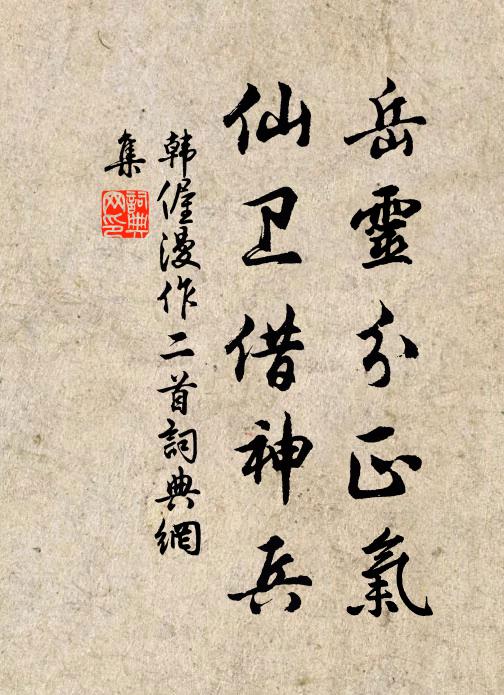 岳靈分正氣
仙卫借神兵
韩偓漫作二首詞典網
集
詞典网印